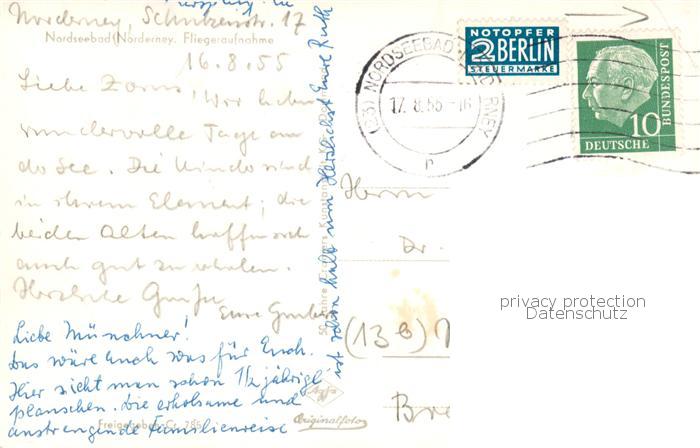 Norderney, Schützenstr. 17
Nordseebad Norderney. Fliegeraufnahme
16.8.55
Liebe Zorns! Wir haben
wundervolle Tage an
der See. Die Kinder sind
in ihrem Element; die
beiden Alten hoffen sich
auch gut zu erholen.
Herzliche Grüße
Eure
Liebe Münchner!
Das wäre auch was für Euch.
Hier sieht man schon 1½ jährige
planschen. Die erholsame und
anstrengende Familienreise
ist schon halb um Herzlichst Eure Ruth
Freigegeben
50 Jahre
Agfa
Originalfoto
NOTOPFER
2 BERLIN
STEUERMARKE
DEUTSCHE
BUNDESPOST
10
NORDSEEBAD
17.8.55.-16
Herrn
Dr.
(13b)
Bre
privacy protection
Datenschutz